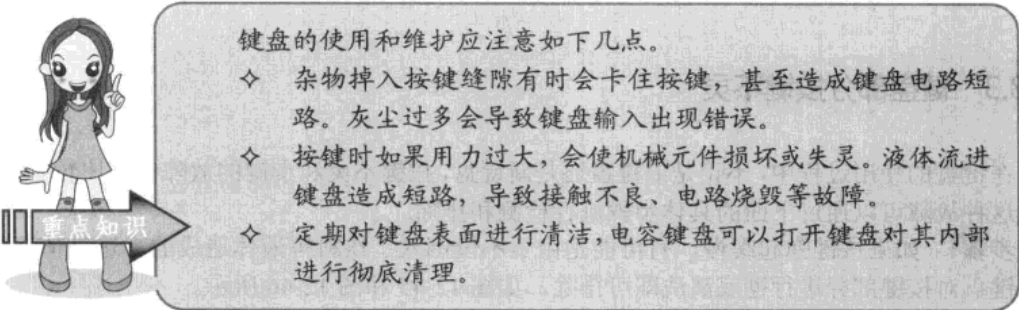 键盘的使用和维护应注意如下几点。
✧ 杂物掉入按键缝隙有时会卡住按键，甚至造成键盘电路短
路。灰尘过多会导致键盘输入出现错误。
✧ 按键时如果用力过大，会使机械元件损坏或失灵。液体流进
键盘造成短路，导致接触不良、电路烧毁等故障。
重点知识
✧ 定期对键盘表面进行清洁，电容键盘可以打开键盘对其内部
进行彻底清理。